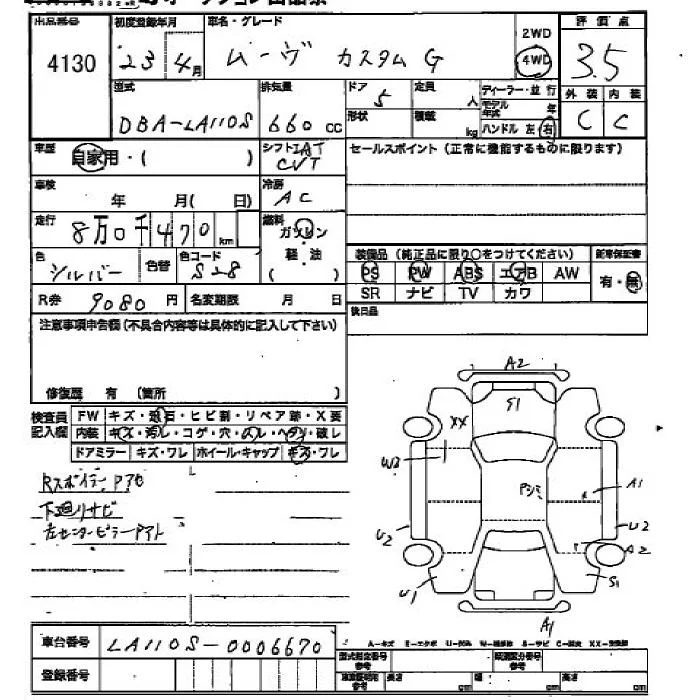 出品番号 初度登録年月 車名・グレード 2WD 評価点
4130 23年4月 ムーヴ カスタムG 4WD 3.5
型式 排気量 ドア 定員 ディーラー・並行 外装 内装
5 人 モデル年式 年
DBA-LA110S 660cc 形状 積載 kg ハンドル 左・右 C C
車歴 自家用・( ) シフト IAT CVT セールスポイント(正常に機能するものに限ります)
車検 年 月( 日) 冷房 AC
走行 8万0千470km 燃料 ガソリン
軽油
( )
色 シルバー 色替 色コード S28
装備品(純正品に限り○をつけてください) 新車保証書
PS PW ABS エアB AW 有・無
R券 9080円 名変期限 月 日 SR ナビ TV カワ
注意事項申告欄(不具合内容等は具体的に記入して下さい) 後日品
修復歴 有 (箇所 )
検査員記入欄 FW キズ・飛石・ヒビ割・リペア跡・X要
内装 キズ・汚れ・コゲ・穴・スレ・ヘタリ・破レ
ドアミラー キズ・ワレ ホイール・キャップ キズ・ワレ
A2
S1
XX
W3
A1
U2 U2
A2
U1 S1
A1
下廻りサビ
左センターピラーPアト
車台番号 LA110S-0006670
A-キズ E-エクボ
登録番号
型式指定番号 参考 類別区分番号 参考
長さ cm 幅 cm 高さ cm